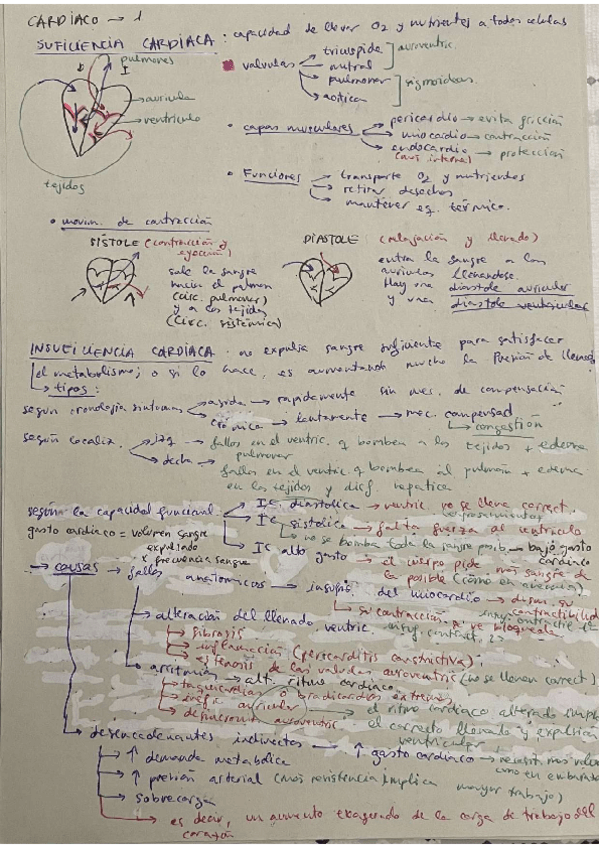 CARDÍACO → 1
SUFICIENCIA CARDÍACA: capacidad de llevar O2 y nutrientes a todos celulas
pulmones
I
aurícula
ventrículo
tejidos
valvulas → tricúspide
→ mitral
] auroventric.
→ pulmonar
→ aórtica
] sigmoideas
• capas musculares → pericardio → evita fricción
→ miocardio → contracción
→ endocardio → protección
(más interna)
• Funciones → transporte O2 y nutrientes
→ retirar desechos
→ mantener eq. térmico.
• movim. de contracción
SÍSTOLE (contracción y
eyección)
sale la sangre
hacia el pulmon
(circ. pulmonar)
y a los tejidos
(circ. sistémica)
DIÁSTOLE (relajación y llenado)
entra la sangre a las
aurículas llenandose.
Hay una diastole auricular
y una diastole ventricular
INSUFICIENCIA CARDÍACA: no expulsa sangre suficiente para satisfacer
el metabolismo; o si lo hace, es aumentando mucho la presión de llenado
→ tipos:
según cronología síntomas → aguda → rapidamente sin mec. de compensación
→ crónica → lentamente → mec. compensad
→ congestión
según localiz. → izq → fallos en el ventric. q bombea a los tejidos + edema
pulmonar
→ decha → fallos en el ventric. q bombea al pulmón + edema
en los tejidos y disf. hepatica
según la capacidad funcional → IC diastolica → ventric. no se llena correct.
→ IC sistolica → falta fuerza al ventriculo
→ no se bomba toda la sangre posib → bajo gasto
cardiaco
gasto cardiaco = volumen sangre
expulsado
x
frecuencia sangre
→ IC alto gasto → el cuerpo pide más sangre de
la posible (como en anemia)
→ causas → fallos anatomicos → insufic. del miocardio → dism. su
contractibilidad
→ su contracción se ve bloqueada
→ alteración del llenado ventric.
→ fibrosis
→ inflamación (pericarditis constrictiva)
→ estenosis de las valvulas auroventric (no se llenan correct)
→ arritmias → alt. ritmo cardiaco
→ taquicardias o bradicardias extremas
→ auricular
→ desincroniz auroventric
→ el ritmo cardiaco alterado
el correcto llenado y expulsión
ventricular
→ desencadenantes indirectos → ↑ gasto cardiaco → necesit. más volum
como en embarazo
→ ↑ demanda metabolica
→ ↑ presión arterial (más resistencia implica mayor trabajo)
→ sobrecarga
→ es decir, un aumento exagerado de la carga de trabajo del
corazón